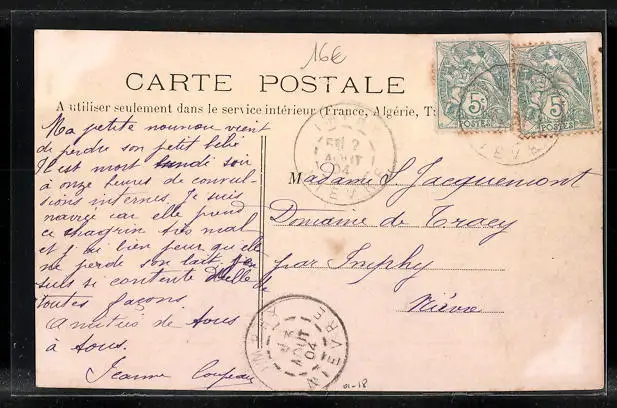 16€
CARTE POSTALE
A utiliser seulement dans le service intérieur (France, Algérie, T
5c 5c
POSTES POSTES
Ma petite nounou vient
de perdre son petit bébé
Il est mort lundi soir
à onze heures de convul-
sions internes. Je suis
navrée car elle prend
ce chagrin très mal
et j'ai bien peur qu'elle
ne perde son lait, j'en
suis si contente d'elle de
toutes façons.
Amitiés de tous
à tous.
Jeanne
Madame S. Jacquemont
Domaine de Tracy
par Imphy
Nièvre
2
AOUT
04
NIEVRE
IMPHY
AOUT
04
NIEVRE
01-18